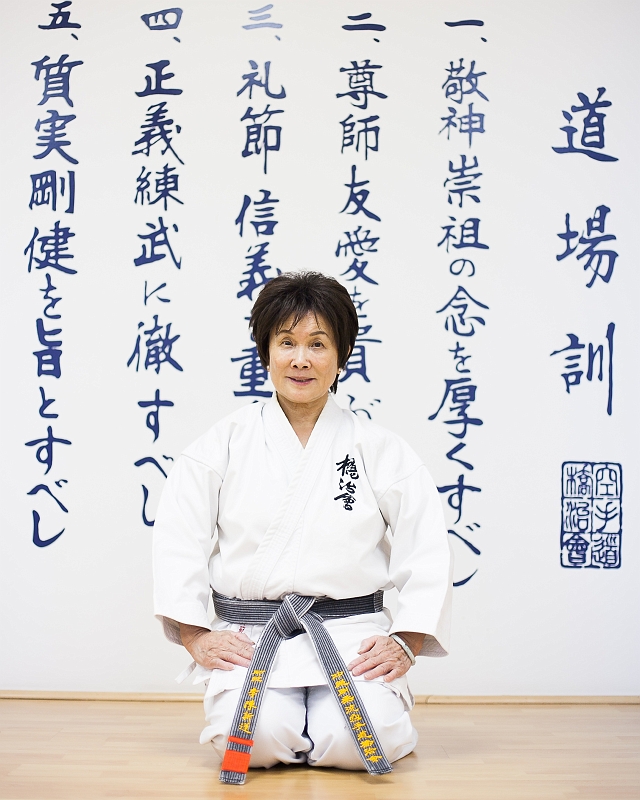 道場訓
空手道
橋治會
一、敬神崇祖の念を厚くすべし
二、尊師友愛を貴ぶ
三、礼節信義を重
四、正義練武に徹すべし
五、質実剛健を旨とすべし
橋治會